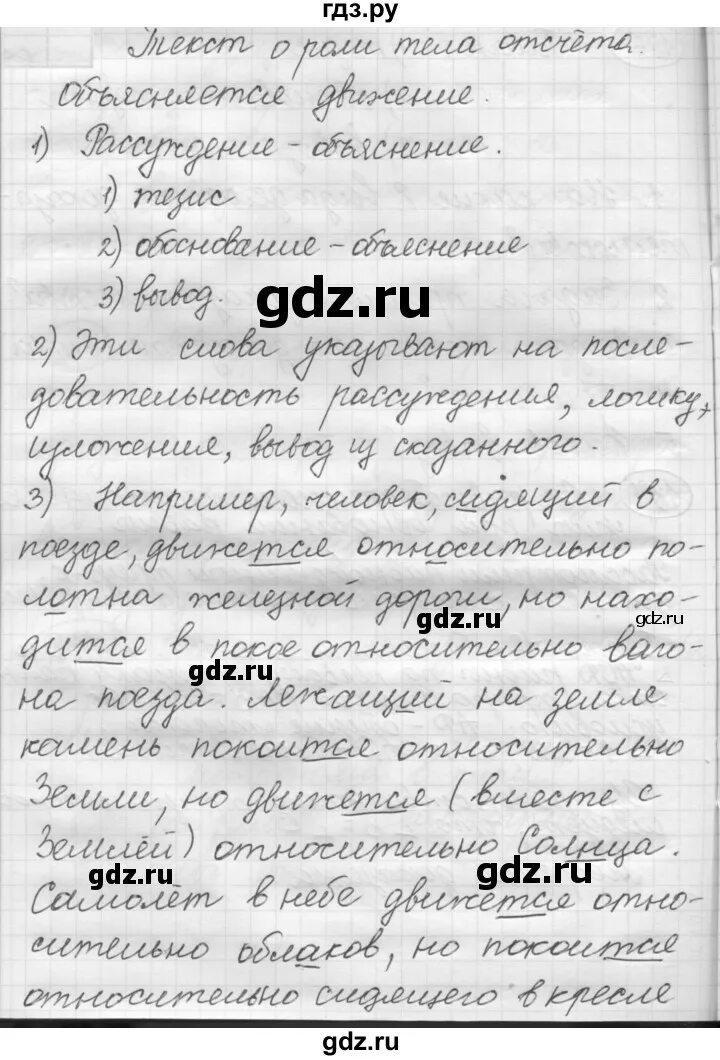 гдз.ру
Текст о роли тела отсчёта.
Объясняется движение.
1) Рассуждение - объяснение.
1) тезис
2) обоснование - объяснение
3) вывод.
gdz.ru
2) Эти слова указывают на после-
довательность рассуждения, логику,
изложения, вывод из сказанного.
3) Например, человек, сидящий в
поезде, движется относительно по-
лотна железной дороги, но нахо-
gdz.ru
gdz.ru
дится в покое относительно ваго-
gdz.ru
на поезда. Лежащий на земле
камень покоится относительно
Земли, но движется (вместе с
Землёй) относительно Солнца.
gdz.ru
gdz.ru
Самолёт в небе движется отно-
сительно облаков, но покоится
относительно сидящего в кресле
gdz.ru